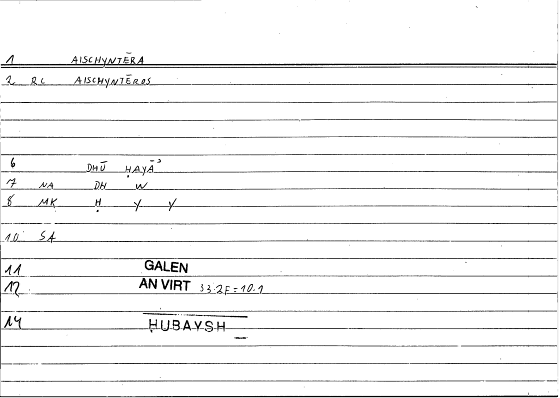 1 AISCHYNTĒRA
2 RC AISCHYNTĒROS
6 DHŪ ḤAYĀʾ
7 NA DH W
8 MK Ḥ Y Y
10 SA
11 GALEN
12 AN VIRT 33.2F=10.1
14 ḤUBAYSH